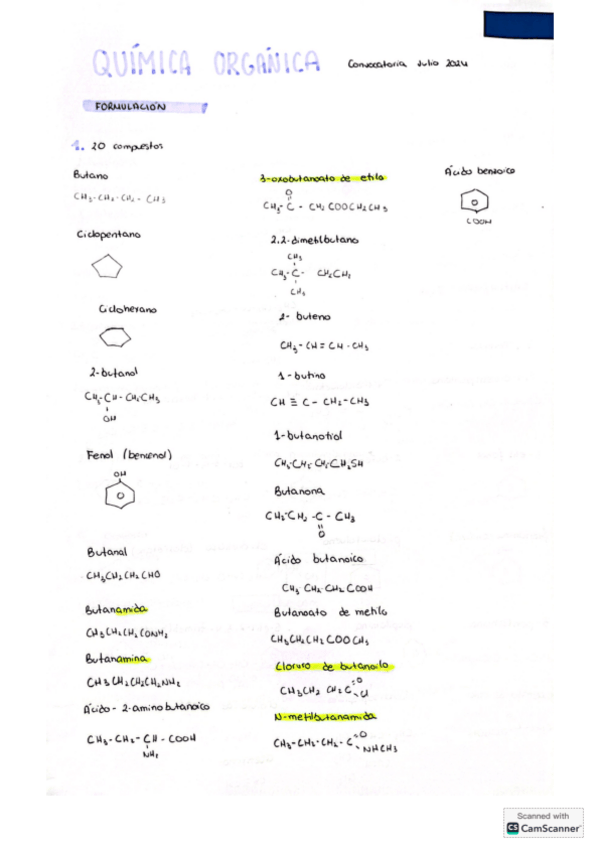 QUÍMICA ORGÁNICA
Convocatoria Julio 2024
FORMULACIÓN
1. 20 compuestos
Butano
CH3-CH2-CH2-CH3
Ciclopentano
Ciclohexano
2-butanol
CH3-CH-CH2CH3
OH
Fenol (bencenol)
OH
Butanal
CH3CH2CH2CHO
Butanamida
CH3CH2CH2CONH2
Butanamina
CH3CH2CH2CH2NH2
Ácido-2-aminobutanoico
CH3-CH2-CH-COOH
NH2
3-oxobutanoato de etilo
O
CH3-C-CH2COOCH2CH3
2,2-dimetilbutano
CH3
CH3-C-CH2CH3
CH3
2-buteno
CH3-CH=CH-CH3
1-butino
CH≡C-CH2-CH3
1-butanotiol
CH3CH2CH2CH2SH
Butanona
CH3CH2-C-CH3
O
Ácido butanoico
CH3CH2CH2COOH
Butanoato de metilo
CH3CH2CH2COOCH3
Cloruro de butanoilo
CH3CH2CH2C
O
Cl
N-metilbutanamida
CH3-CH2-CH2-C
O
NHCH3
Ácido benzoico
COOH
Scanned with
CS CamScanner